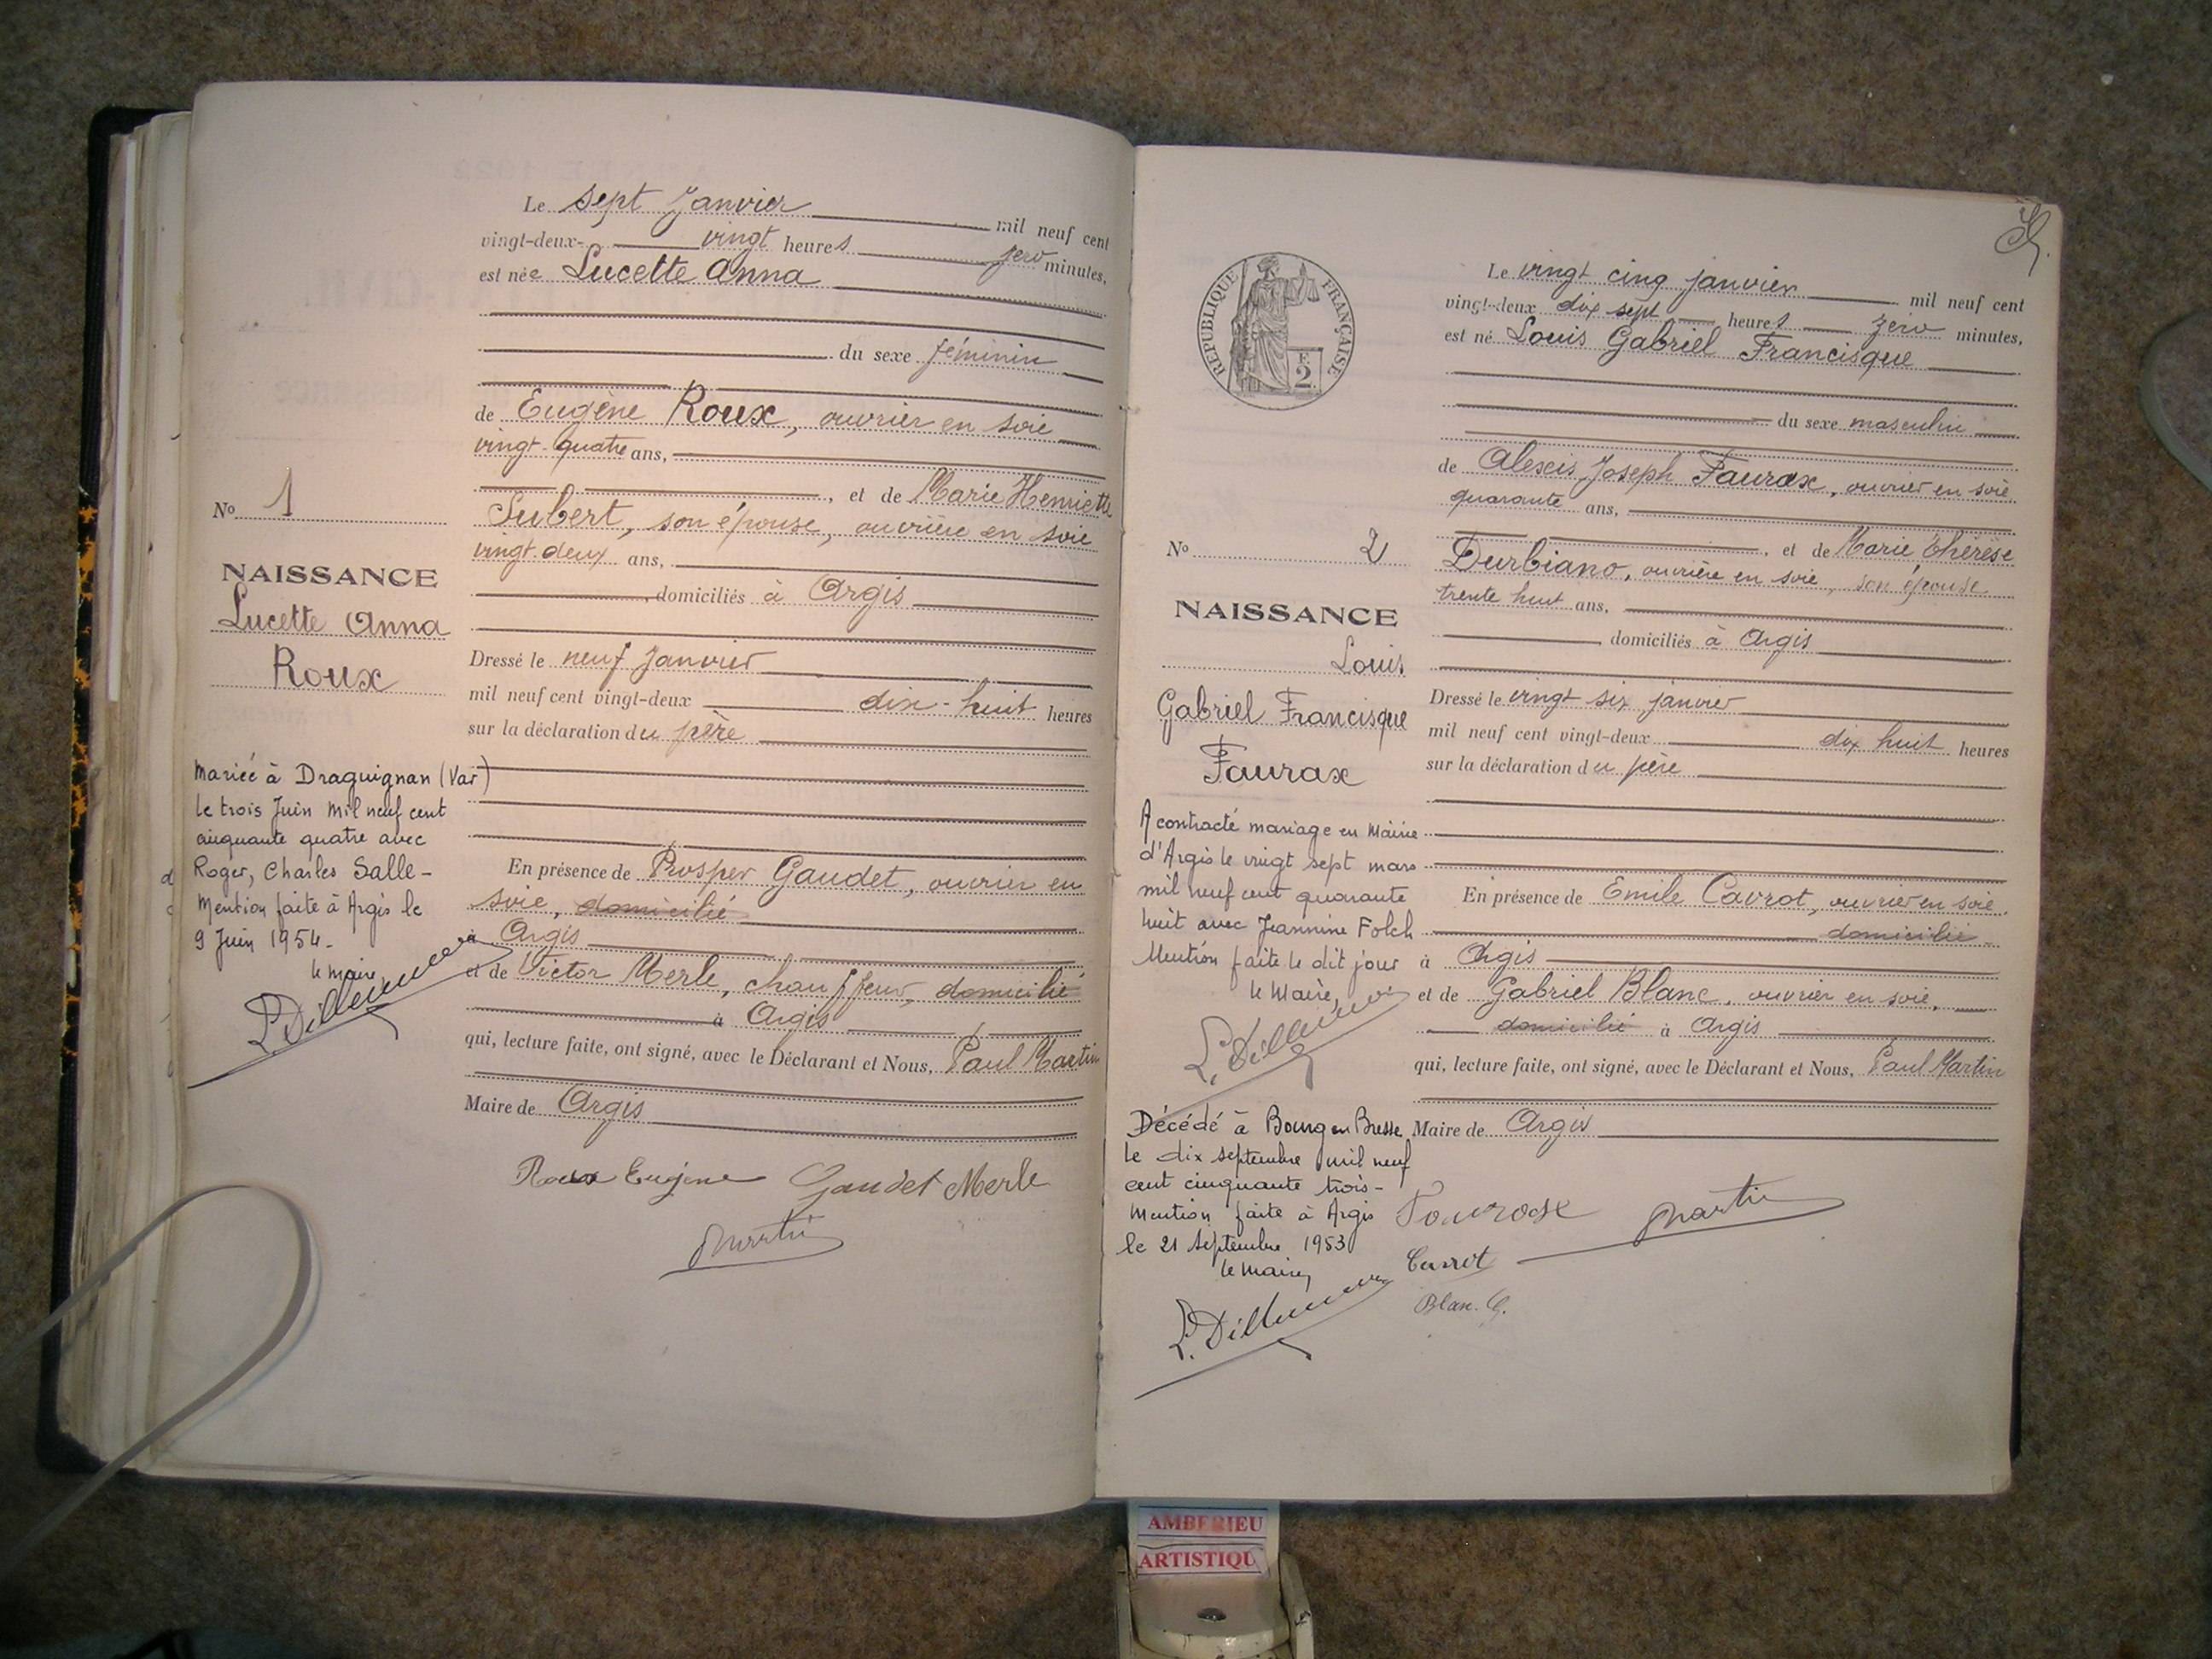 Le sept Janvier mil neuf cent
vingt-deux- vingt heures zero minutes,
est née Lucette Anna
du sexe féminin
de Eugène Roux, ouvrier en soie
vingt-quatre ans,
, et de Marie Henriette
Subert, son épouse, ouvrière en soie
vingt-deux ans,
, domiciliés à Argis
Dressé le neuf Janvier
mil neuf cent vingt-deux dix-huit heures
sur la déclaration du père
En présence de Prosper Gaudet, ouvrier en
soie, domicilié
à Argis
et de Victor Merle, chauffeur, domicilié
à Argis
qui, lecture faite, ont signé, avec le Déclarant et Nous, Paul Martin
Maire de Argis
Roux Eugène Gaudet Merle
Martin
No 1
NAISSANCE
Lucette Anna
Roux
Mariée à Draguignan (Var)
le trois Juin mil neuf cent
cinquante quatre avec
Roger, Charles Salle -
Mention faite à Argis le
9 Juin 1954 -
le maire
RÉPUBLIQUE FRANÇAISE
F.
2
Le vingt cinq janvier mil neuf cent
vingt-deux dix sept heures zéro minutes,
est né Louis Gabriel Francisque
du sexe masculin
de Alexis Joseph Faurax, ouvrier en soie
quarante ans,
, et de Marie Thérèse
Durbiano, ouvrière en soie, son épouse
trente huit ans,
, domiciliés à Argis
Dressé le vingt six janvier
mil neuf cent vingt-deux dix huit heures
sur la déclaration du père
En présence de Emile Cavrot, ouvrier en soie,
domicilié
à Argis
et de Gabriel Blanc, ouvrier en soie,
domicilié à Argis
qui, lecture faite, ont signé, avec le Déclarant et Nous, Paul Martin
Maire de Argis
Faurax Martin
Cavrot
Blanc G.
No 2
NAISSANCE
Louis
Gabriel Francisque
Faurax
A contracté mariage en Mairie
d'Argis le vingt sept mars
mil neuf cent quarante
huit avec Jeannine Folch
Mention faite le dit jour
le Maire,
Décédé à Bourg en Bresse
le dix septembre mil neuf
cent cinquante trois -
Mention faite à Argis
le 21 Septembre 1953
le maire,
AMBERIEU
ARTISTIQU